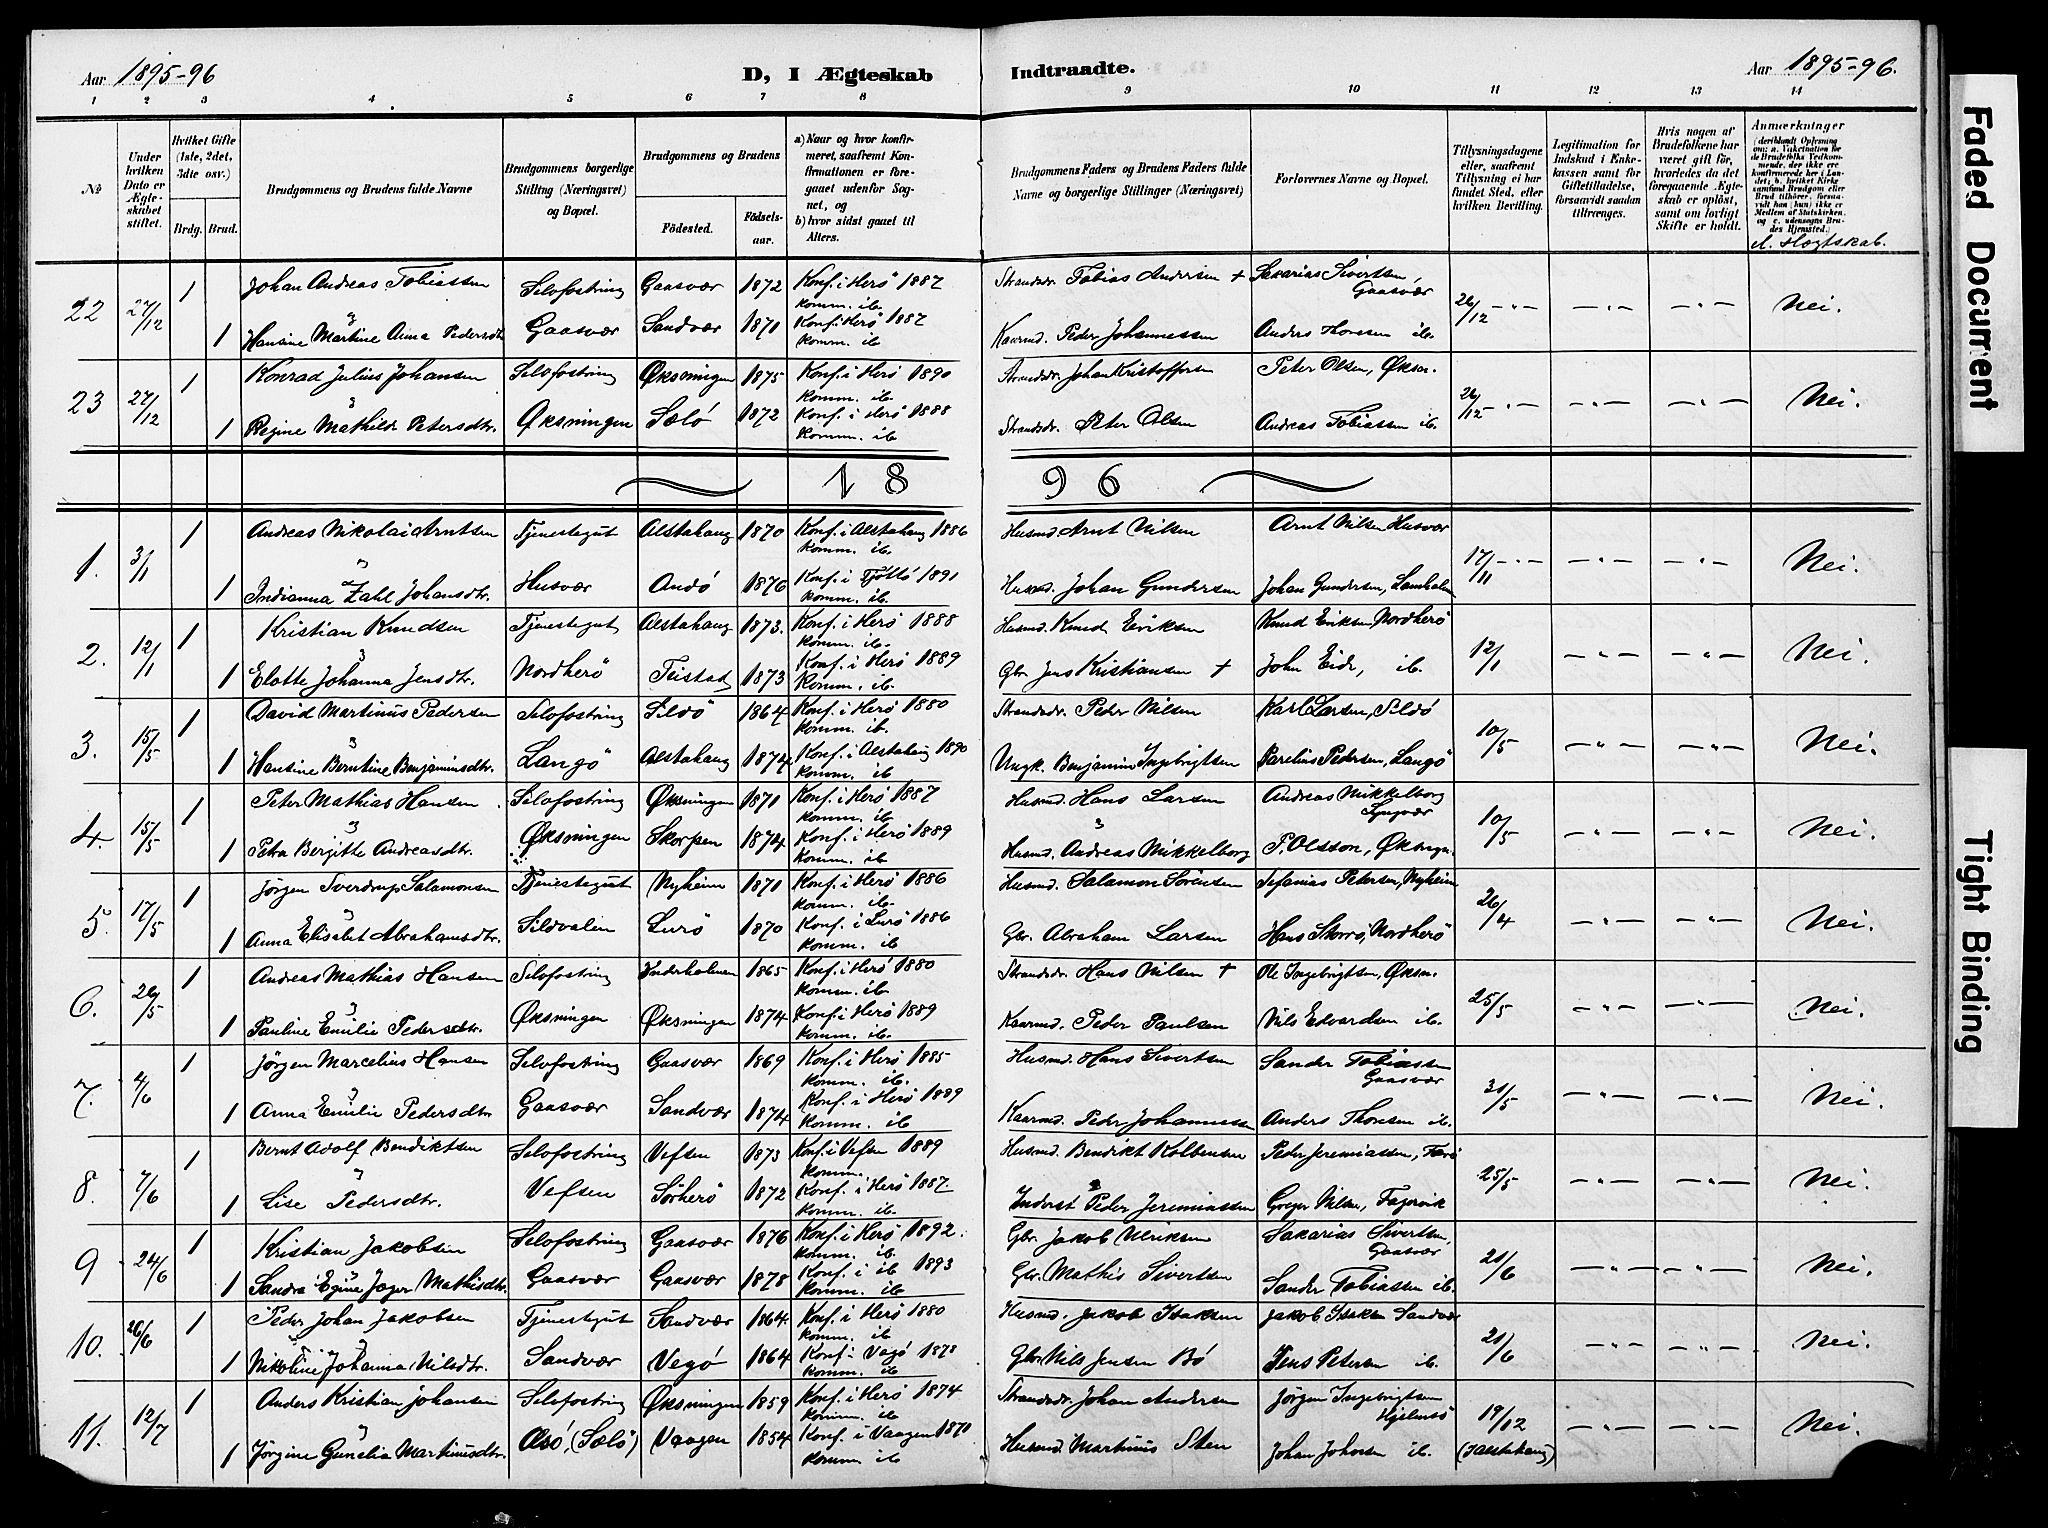 Aar 1895-96
D, I Ægteskab Indtraadte.
Aar 1895-96.
1 2 3 4 5 6 7 8 9 10 11 12 13 14
№
Under hvilken Dato er Ægteskabet stiftet.
Hvilket Gifte (1ste, 2det, 3die osv.)
Brdg. Brud.
Brudgommens og Brudens fulde Navne
Brudgommens borgerlige Stilling (Næringsvei) og Bopæl.
Brudgommens og Brudens
Födested.
Födselsaar.
a) Naar og hvor konfirmeret, saafremt Konfirmationen er foregaaet udenfor Sognet, og
b) hvor sidst gaaet til Alters.
Brudgommens Faders og Brudens Faders fulde Navne og borgerlige Stillinger (Næringsvei)
Forlovernes Navne og Bopæl.
Tillysningsdagene eller, saafremt Tillysning ei har fundet Sted, efter hvilken Bevilling.
Legitimation for Indskud i Enkekassen samt for Giftetilladelse, forsaavidt saadan tiltrænges.
Hvis nogen af Brudefolkene har været gift før, hvorledes da det foregaaende Ægteskab er oplöst, samt om lovligt Skifte er holdt.
Anmærkninger
22 27/12 1 Johan Andreas Tobiassen Selofostring Gaasvær 1872 Konf. i Herö 1887 Strandsdr. Tobias Andersen + Sakarias Sivertsen, Gaasvær 26/12 Nei.
komm. ib.
1 Hansine Martine Anna Pedersdtr Gaasvær Sandvær 1871 Konf. i Herö 1887 Kaarmd. Peder Johannessen Anders Thoresen ib.
komm. ib
23 27/12 1 Konrad Julius Johansen Selofostring Øksningen 1875 Konf. i Herö 1890 Strandsdr. Johan Kristoffersen Peter Olsen, Øksn. 26/12 Nei.
komm. ib.
1 Regine Mathilde Petersdtr. Øksningen Sælö 1872 Konf. i Herö 1888 Strandsdr. Peter Olsen Andreas Tobiassen ib.
komm. ib
1896
1. 3/1 1 Andreas Nikolai Arntsen Tjenestegut Alstahaug 1870 Konf. i Alstahaug 1886 Husmd. Arnt Nilsen Arnt Nilsen Husvær 17/11 Nei.
komm. ib
1 Indianna Zahl Johansdtr. Husvær Andö 1876 Konf. i Tjöttö 1891 Husmd. Johan Gundersen Johan Gundersen,
komm. ib.
2. 12/1 1 Kristian Knudsen Tjenestegut Alstahaug 1873. Konf. i Herö 1888 Husmd. Knud Eriksen Knud Eriksen, Nordherö 12/1 Nei.
komm. ib.
1 Elotte Johanna Jensdtr. Nordherö Teistad 1873 Konf. i Herö 1889 Gbr. Jens Kristiansen + John Eide, ib.
komm. ib.
3. 15/5 1 David Martinus Pedersen Selofostring Sildö 1864 Konf. i Herö 1880 Strandsdr. Peder Nilsen Karl Larsen, Sildö 10/5 Nei.
komm. ib.
1 Hansine Berntine Benjaminsdtr. Langö Alstahaug 1874 Konf. i Alstahaug 1890 Ungk. Benjamin Ingebrigtsen Parelius Pedersen, Langö
komm. ib
4. 15/5 1 Peter Mathias Hansen Selofostring Øksningen 1871 Konf. i Herö 1887 Husmd. Hans Larsen Andreas Mikkelborg Lyngvær 10/5 Nei.
komm. ib
1 Petra Bergitte Andreasdtr. Øksningen Skorpen 1874 Konf. i Herö 1889 Husmd. Andreas Mikkelborg P. Olsson, Øksngn.
komm. ib
5. 17/5 1 Jörgen Sverdrup Salamonsen Tjenestegut Nyheim 1871 Konf. i Herö 1886 Husmd. Salamon Sörensen Petersen, Nyheim 26/4 Nei.
komm. ib.
1 Anna Elisabet Abrahamsdtr. Sildvalen Lurö 1870 Konf. i Lurö 1886 Gbr. Abraham Larsen Hans Storrö, Nordherö
komm. ib
6. 26/5 1 Andreas Mathias Hansen Selofostring Inderholmen 1865 Konf. i Herö 1880 Strandsdr. Hans Nilsen + Ole Ingebrigtsen, Øksn. 25/5 Nei.
komm. ib.
1 Pauline Emilie Pedersdtr. Øksningen Øksningen 1874 Konf. i Herö 1889 Kaarmd. Peder Paulsen Nils Edvardsen ib.
komm. ib.
7. 4/6 1 Jörgen Marcelius Hansen Selofostring Gaasvær 1869 Konf. i Herö 1885 Husmd. Hans Sivertsen Sander Tobiassen Gaasvær 31/5 Nei.
komm. ib.
1 Anna Emilie Pedersdtr Gaasvær Sandvær 1874 Konf. i Herö 1889 Kaarmd. Peder Johannessen Anders Thoresen ib.
komm. ib
8. 7/6 1 Bernt Adolf Bendiktsen Selofostring Vefsen 1873 Konf. i Vefsen 1889 Husmd. Bendikt Kolbensen Peder Jeremiassen, 25/5 Nei.
komm.
1 Lise Pedersdtr. Vefsen Sörherö 1872 Konf. i Herö 1887. Inderst Peder Jeremiassen Greger Nilsen, Fagervik
komm. ib
9 24/6 1 Kristian Jakobsen Selofostring Gaasvær 1876 Konf. i Herö 1892. Gbr. Jakob Ulriksen Sakarias Sivertsen, Gaasvær 21/6 Nei.
komm. ib.
1 Sandra Egine Jæger Mathisdtr. Gaasvær Gaasvær 1878 Konf. i ib 1893 Gbr. Mathis Sivertsen Sander Tobiassen ib.
komm. ib
10. 26/6 1 Peder Johan Jakobsen Tjenestegut Sandvær 1864. Konf. i Herö 1880 Husmd. Jakob Isaksen Jakob Isaksen Sandvær 21/6 Nei.
komm. ib.
1 Nikoline Johanna Nilsdtr. Sandvær Vegö 1864 Konf. i Vegö 1878 Gbr. Nils Jensen Bö Jens Petersen ib.
komm. ib
11. 12/7 1 Anders Kristian Johansen Selofostring Øksningen 1859 Konf. i Herö 1874 Strandsdr. Johan Andersen Jörgen Ingebrigtsen Hjelmsö 19/12 Nei.
komm. ib
1 Jörgine Gunelia Martinusdtr. (Sælö) Vaagen 1854 Konf. i Vaagen 1870 Husmd. Martinus Sten Johan Johnsen ib. (i Alstahaug)
komm. ib
Faded Document
Tight Binding